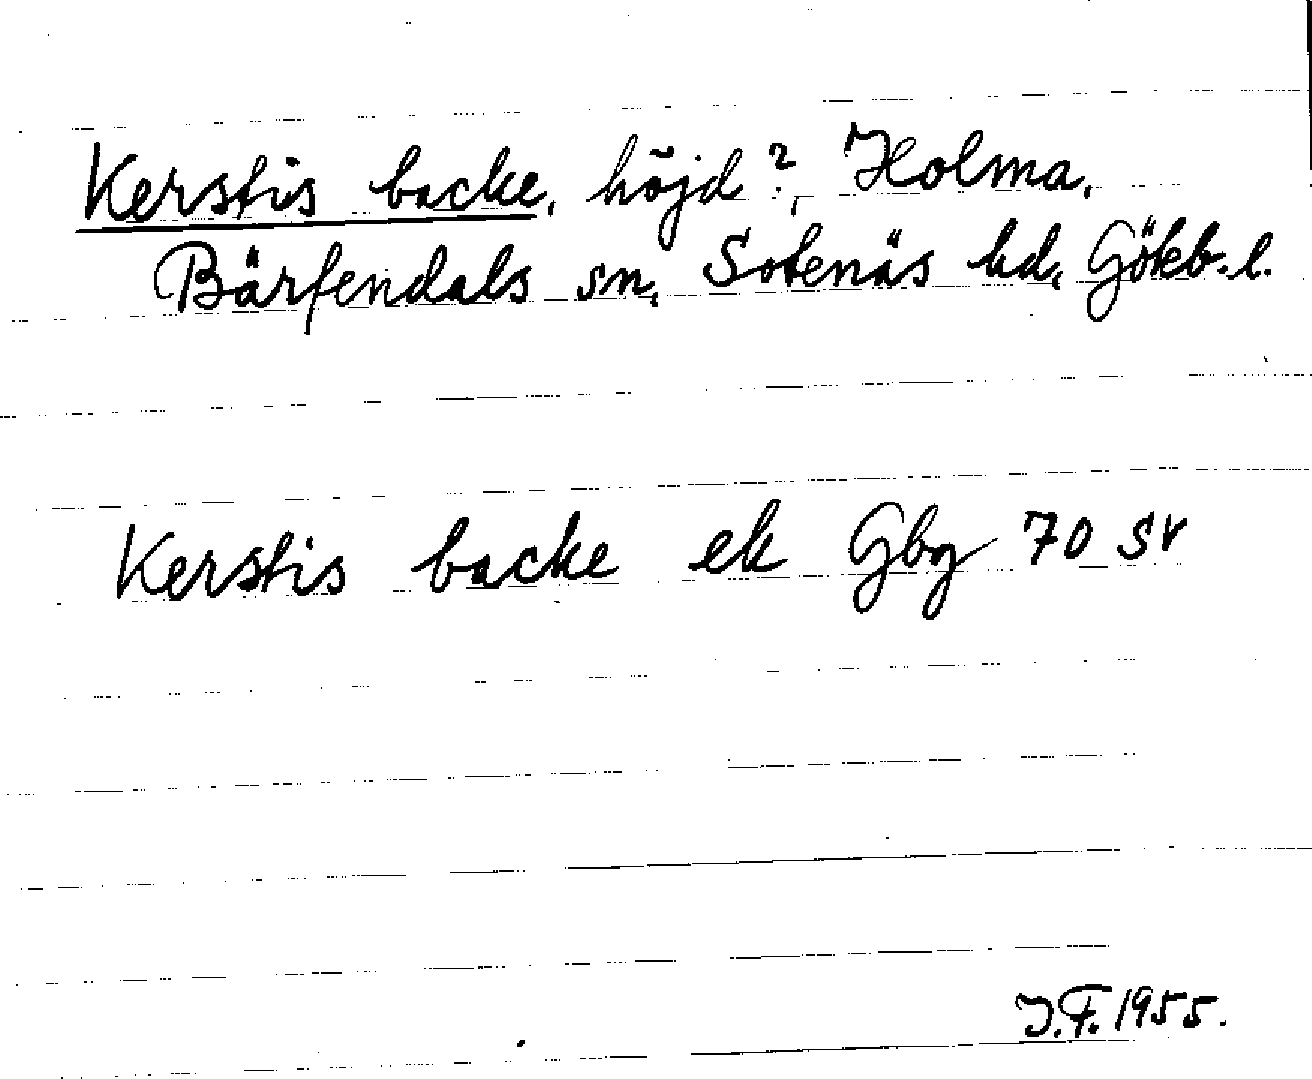 Kerstis backe, höjd?, Holma,
Bärfendals sn, Sotenäs hd, Göteb. l.
Kerstis backe ek Gbg 70 SV
J.F. 1955.